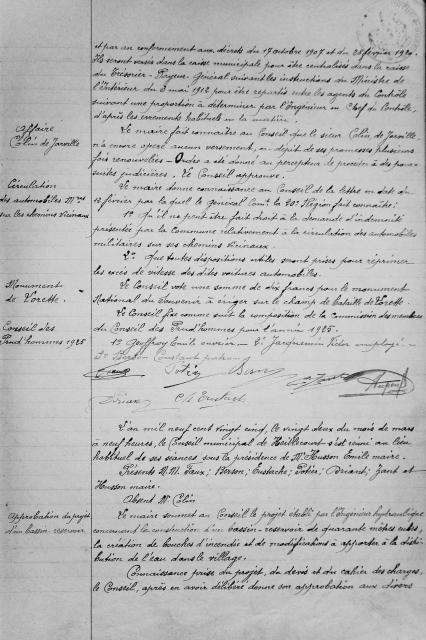 et par an conformément aux décrets du 17 octobre 1907 et du 28 février 1920.
Ils seront versés dans la caisse municipale pour être centralisés dans la caisse
du Trésorier-Payeur Général suivant les instructions du Ministre de
l'Intérieur du 3 mai 1912 pour être repartis entre les agents du Contrôle
suivant une proportion à déterminer par l'Ingénieur en Chef du Contrôle,
d'après les errements habituels en la matière.
Affaire
Colin de Jarville
Le maire fait connaître au Conseil que le sieur Colin, de Jarville
n'a encore opéré aucun versement, en dépit de ses promesses plusieurs
fois renouvelées - Ordre a été donné au percepteur de procéder à des pour-
suites judiciaires. Le Conseil approuve.
Circulation
des automobiles Mres
sur les chemins vicinaux
Le maire donne connaissance au Conseil de la lettre en date du
12 février par laquelle le général Comt la 20e Région fait connaître:
1° Qu'il ne peut être fait droit à la demande d'indemnité
présentée par la Commune relativement à la circulation des automobiles
militaires sur ses chemins vicinaux.
2° Que toutes dispositions utiles seront prises pour réprimer
les excès de vitesse des dites voitures automobiles.
Monument
de Lorette.
Le Conseil vote une somme de dix francs pour le monument
National du Souvenir à ériger sur le champ de bataille de Lorette.
Conseil des
Prud'hommes 1925
Le Conseil fixe comme suit la composition de la commission des membres
du Conseil des Prud'hommes pour l'année 1925.
1° Geoffroy Emile ouvrier - 2° Jacquemin Victor employé -
3° Constant patron
Potier Berson
Briand Ch Eustache
L'an mil neuf cent vingt cinq, le vingt deux du mois de mars
à neuf heures, le Conseil municipal de Heillecourt s'est réuni au lieu
habituel de ses séances sous la présidence de Mr Husson Emile maire.
Présents M.M. Faux; Berson; Eustache; Potier; Briand; Zant et
Husson maire.
Absent M. Colin
Approbation du projet
d'un bassin-réservoir
Le maire soumet au Conseil le projet établi par l'Ingénieur hydraulique
concernant la construction d'un bassin-réservoir de quarante mètres cubes,
la création de bouches d'incendie et de modifications à apporter à la distri-
bution de l'eau dans le village.
Connaissance prise du projet, du devis et du cahier des charges,
le Conseil, après en avoir délibéré donne son approbation aux divers